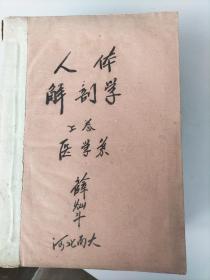 人体
解剖学
上卷
医学系
薛灿斗
河北南大